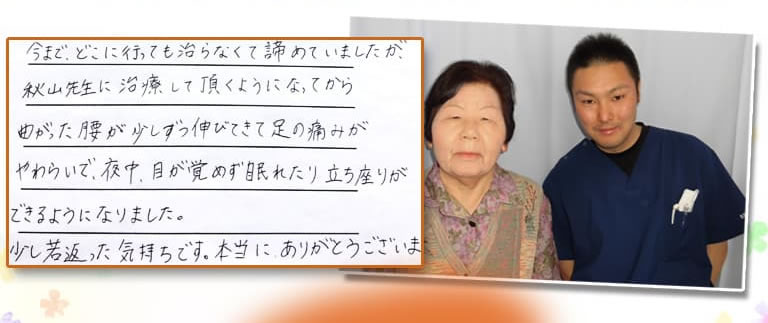 今まで、どこに行っても治らなくて諦めていましたが、
秋山先生に治療して頂くようになってから
曲がった腰が少しずつ伸びてきて足の痛みが
やわらいで、夜中、目が覚めず眠れたり立ち座りが
できるようになりました。
少し若返った気持ちです。本当に、ありがとうございま